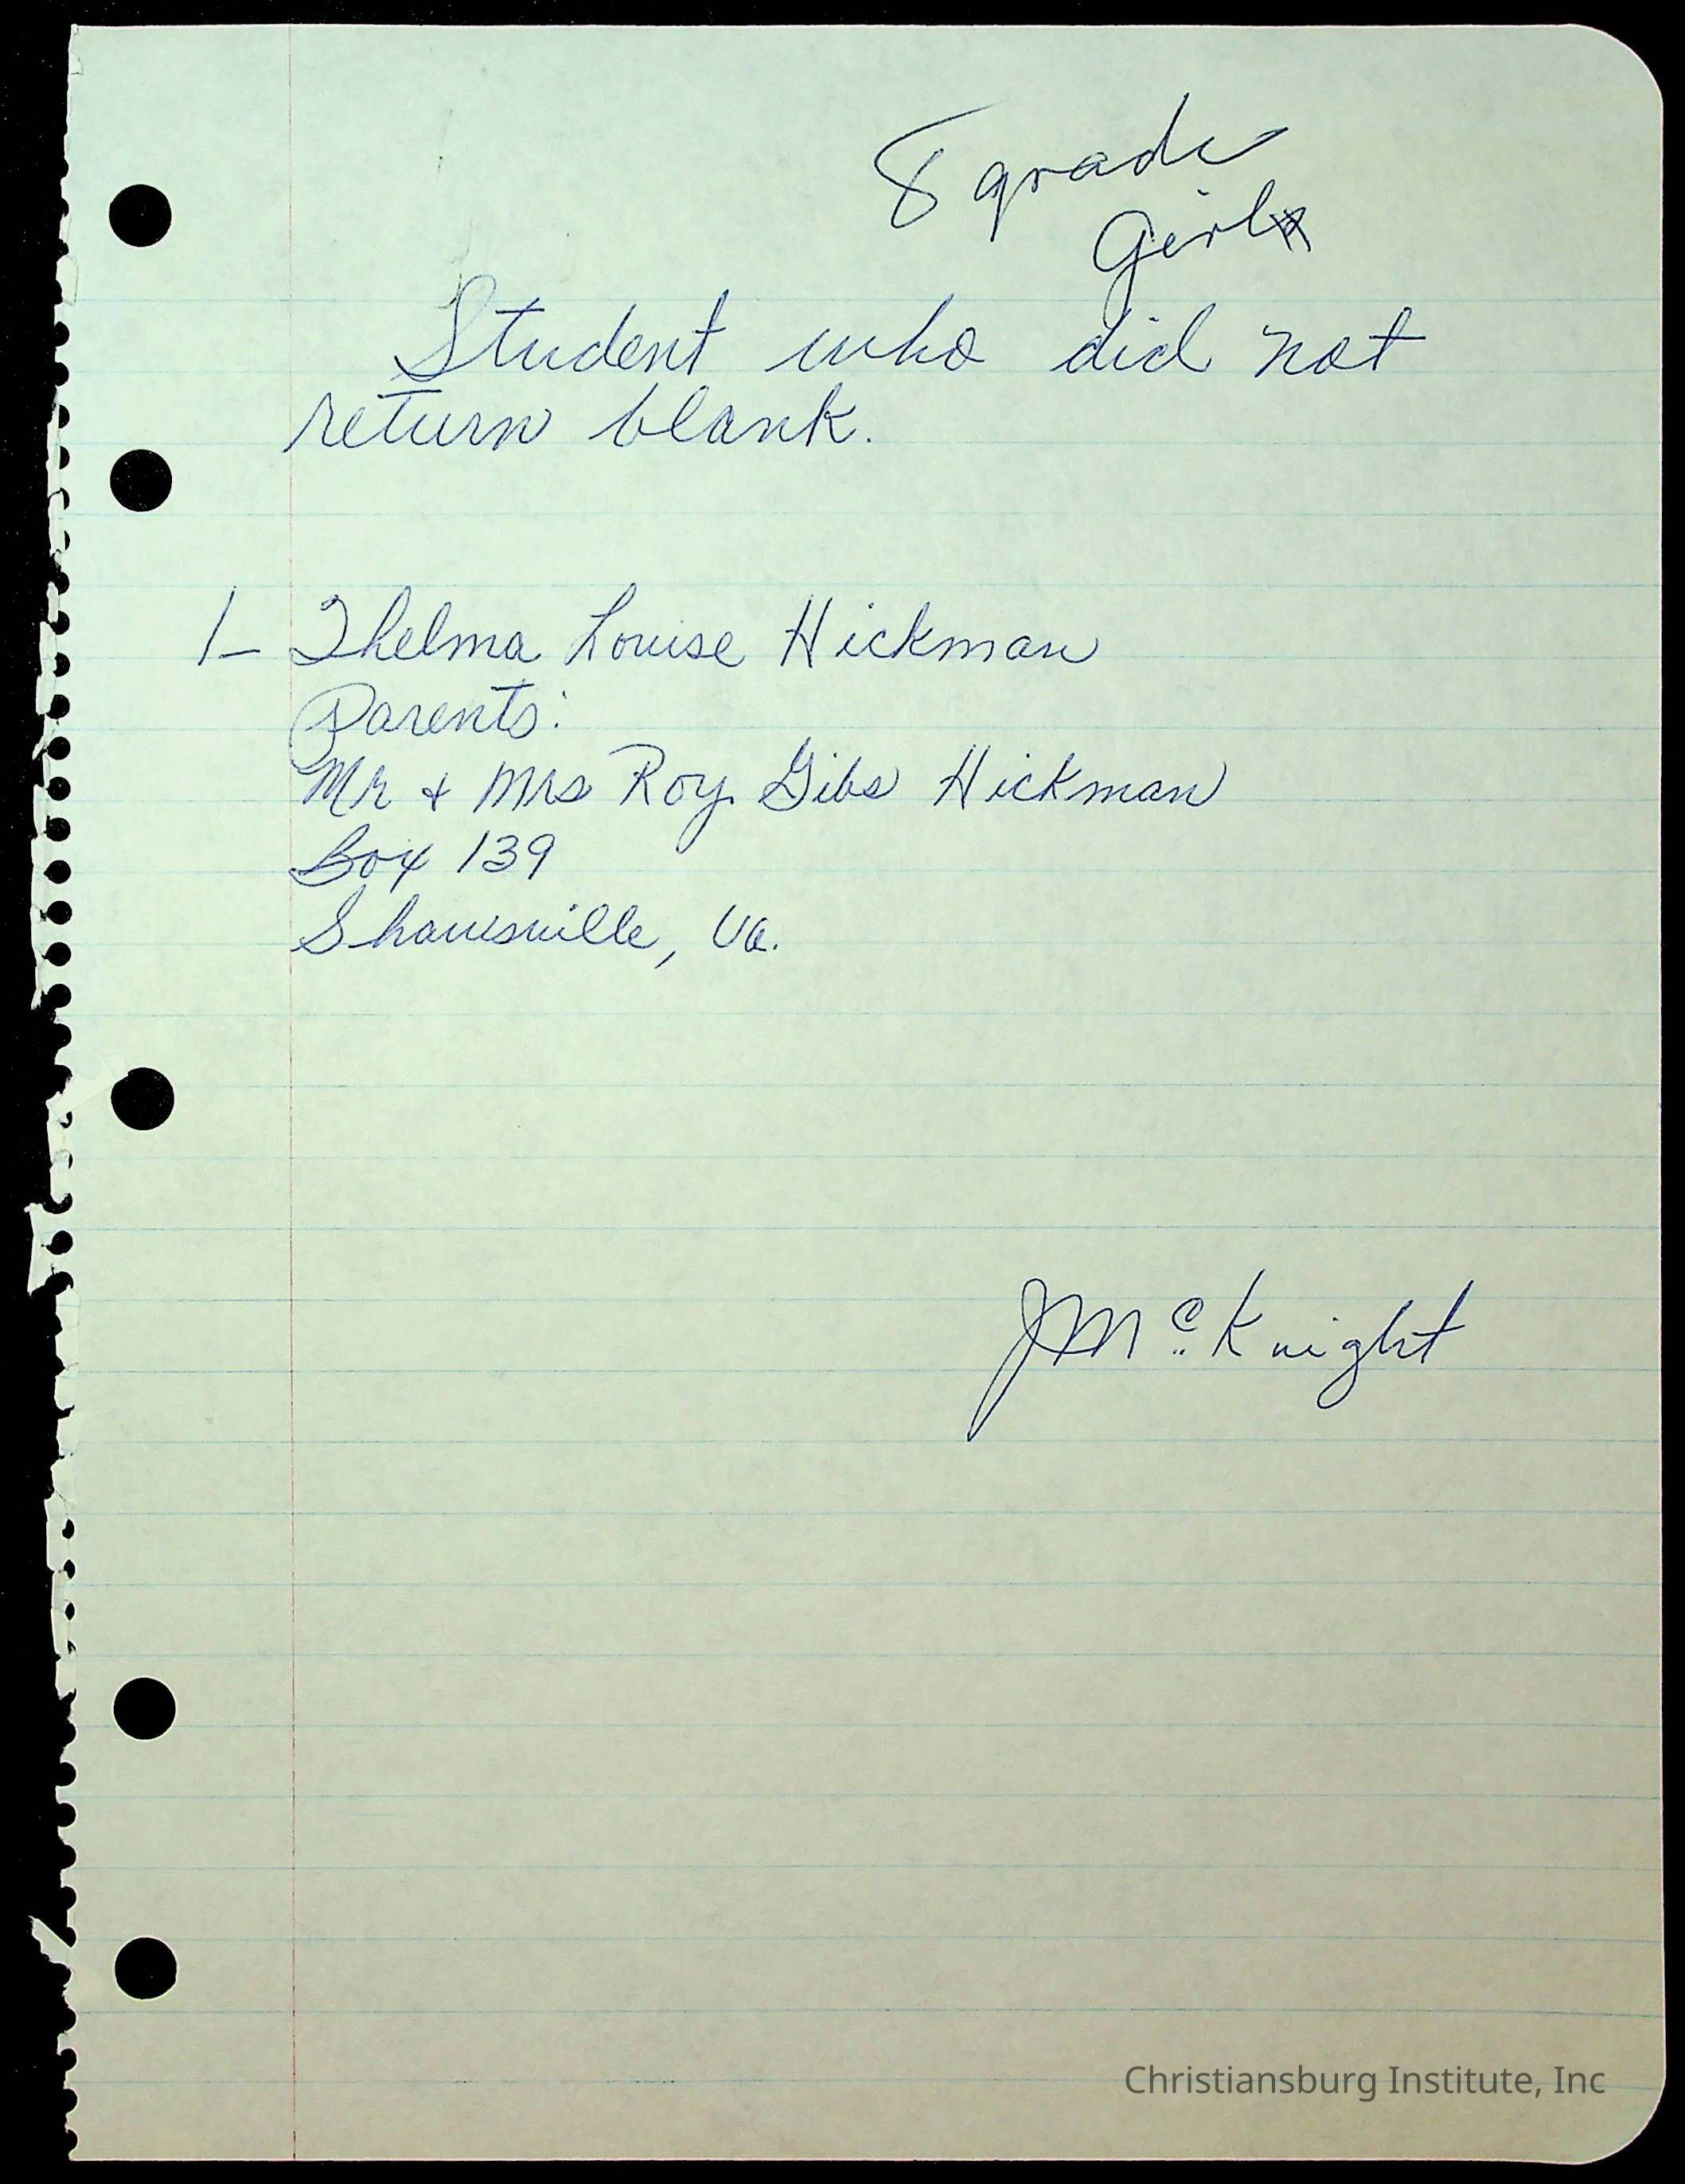 8 grade
Girl
Student who did not
return blank.
1- Thelma Louise Hickman
Parents:
Mr & Mrs Roy Gibs Hickman
Box 139
Shawsville, Va.
JMcKnight
Christiansburg Institute, Inc